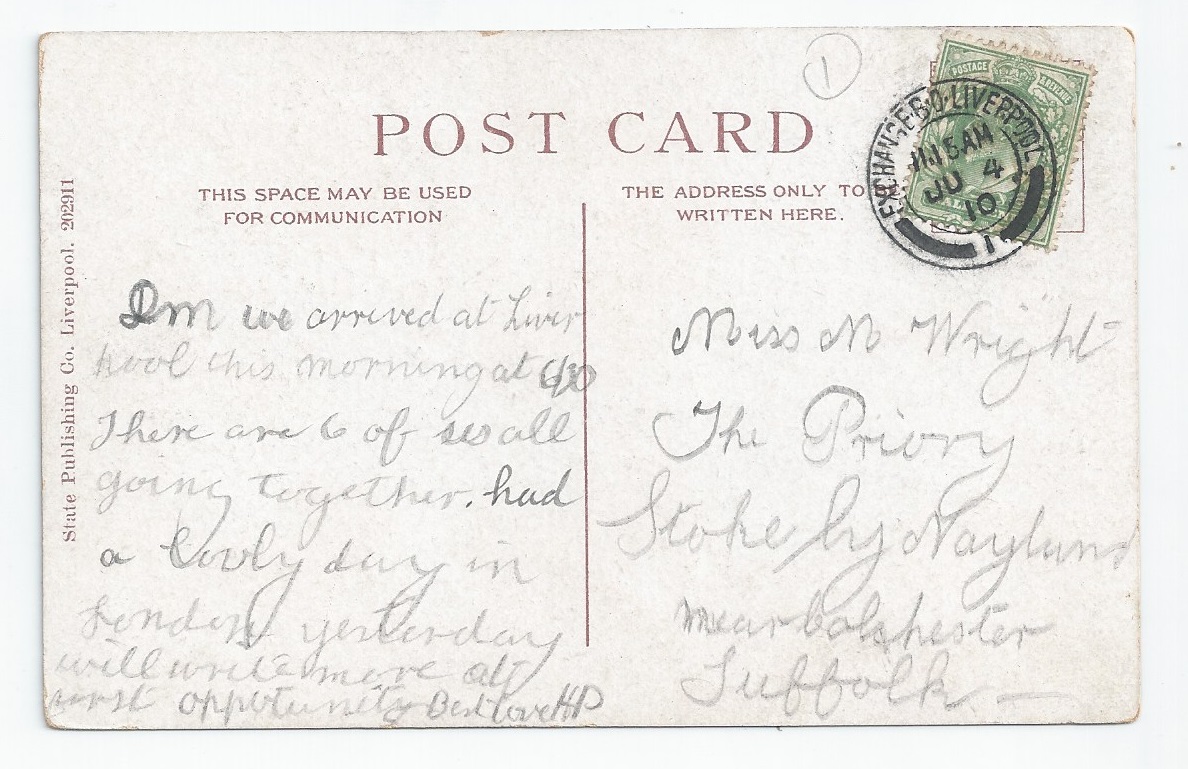 1
POST CARD
THIS SPACE MAY BE USED
FOR COMMUNICATION
THE ADDRESS ONLY TO BE
WRITTEN HERE.
POSTAGE
EXCHANGE B.O. LIVERPOOL
11.15AM
JU 4
10
1
State Publishing Co. Liverpool. 202911
Dm we arrived at Liver
pool this morning at
There are 6 of us all
going together. had
a lovly day in
London yesterday
will write more at
first oppotunity Best love HP
Miss M Wright
The Priory
Stoke by Nayland
near Colchester
Suffolk